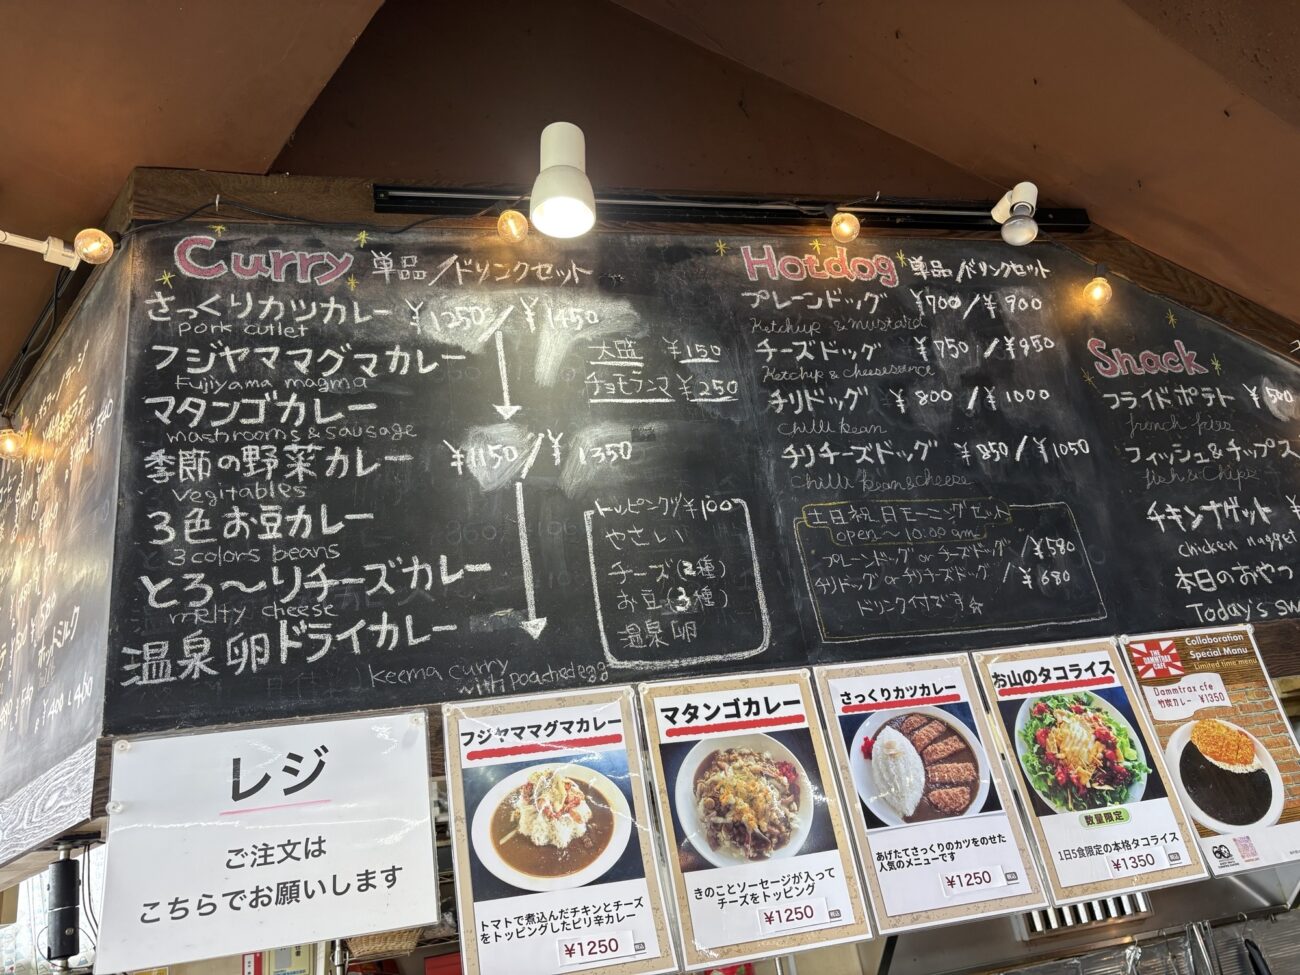 Curry 単品/ドリンクセット
さっくりカツカレー ¥1250/¥1450
pork cutlet
フジヤママグマカレー
Fujiyama magma
マタンゴカレー
mashrooms & sausage
季節の野菜カレー ¥1150/¥1350
vegitables
3色お豆カレー
3 colors beans
とろ〜りチーズカレー
melty cheese
温泉卵ドライカレー
keema curry
with poached egg
大盛 ¥150
チョモランマ ¥250
トッピング ¥100
やさい
チーズ(2種)
お豆(3種)
温泉卵
Hotdog 単品/ドリンクセット
プレーンドッグ ¥700/¥900
Ketchup & mustard
チーズドッグ ¥750/¥950
Ketchup & cheesesauce
チリドッグ ¥800/¥1000
chilli bean
チリチーズドッグ ¥850/¥1050
chilli bean & cheese
土日祝日モーニングセット
open〜10:00am
プレーンドッグ or チーズドッグ/¥580
チリドッグ or チリチーズドッグ/¥680
ドリンク付です☆
Snack
フライドポテト ¥500
french fries
フィッシュ&チップス
fish & chips
チキンナゲット ¥
chicken nugget
本日のおやつ
Today's sw
レジ
ご注文は
こちらでお願いします
フジヤママグマカレー
トマトで煮込んだチキンとチーズ
をトッピングしたピリ辛カレー
¥1250 税込
マタンゴカレー
きのことソーセージが入って
チーズをトッピング
¥1250 税込
さっくりカツカレー
あげたてさっくりのカツをのせた
人気のメニューです
¥1250 税込
お山のタコライス
数量限定
1日5食限定の本格タコライス
¥1350 税込
THE
DAMMTRAX
CAFE
Collaboration
Special Manu
Limited time menu
Dammtrax cfe
竹炭カレー ¥1350